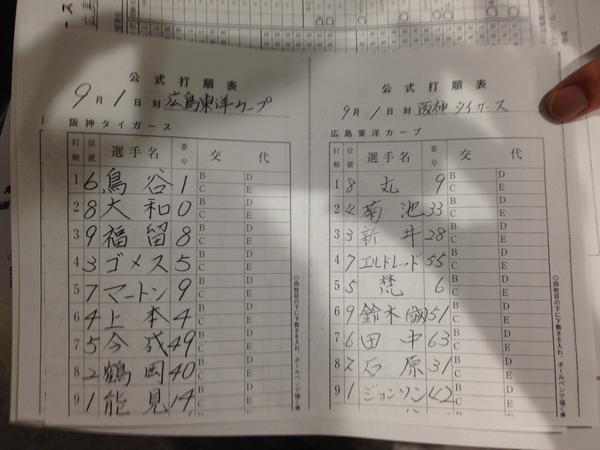 公式打順表
9月1日対広島東洋カープ
阪神タイガース
打順 位置 選手名 番号 交代
1 6 鳥谷 1 B C D E
2 8 大和 0 B C D E
3 9 福留 8 B C D E
4 3 ゴメス 5 B C D E
5 7 マートン 9 B C D E
6 4 上本 4 B C D E
7 5 今成 49 B C D E
8 2 鶴岡 40 B C D E
9 1 能見 14 B C D E
○四枚目の下に下敷きを入れ、ボールペンで強く書
公式打順表
9月1日対阪神タイガース
広島東洋カープ
打順 位置 選手名 番号 交代
1 8 丸 9 B C D E
2 4 菊池 33 B C D E
3 3 新井 28 B C D E
4 7 エルドレッド 55 B C D E
5 5 梵 6 B C D E
6 9 鈴木(誠) 51 B C D E
7 6 田中 63 B C D E
8 2 石原 31 B C D E
9 1 ジョンソン 42 B C D E
○四枚目の下に下敷きを入れ、ボールペンで強く書